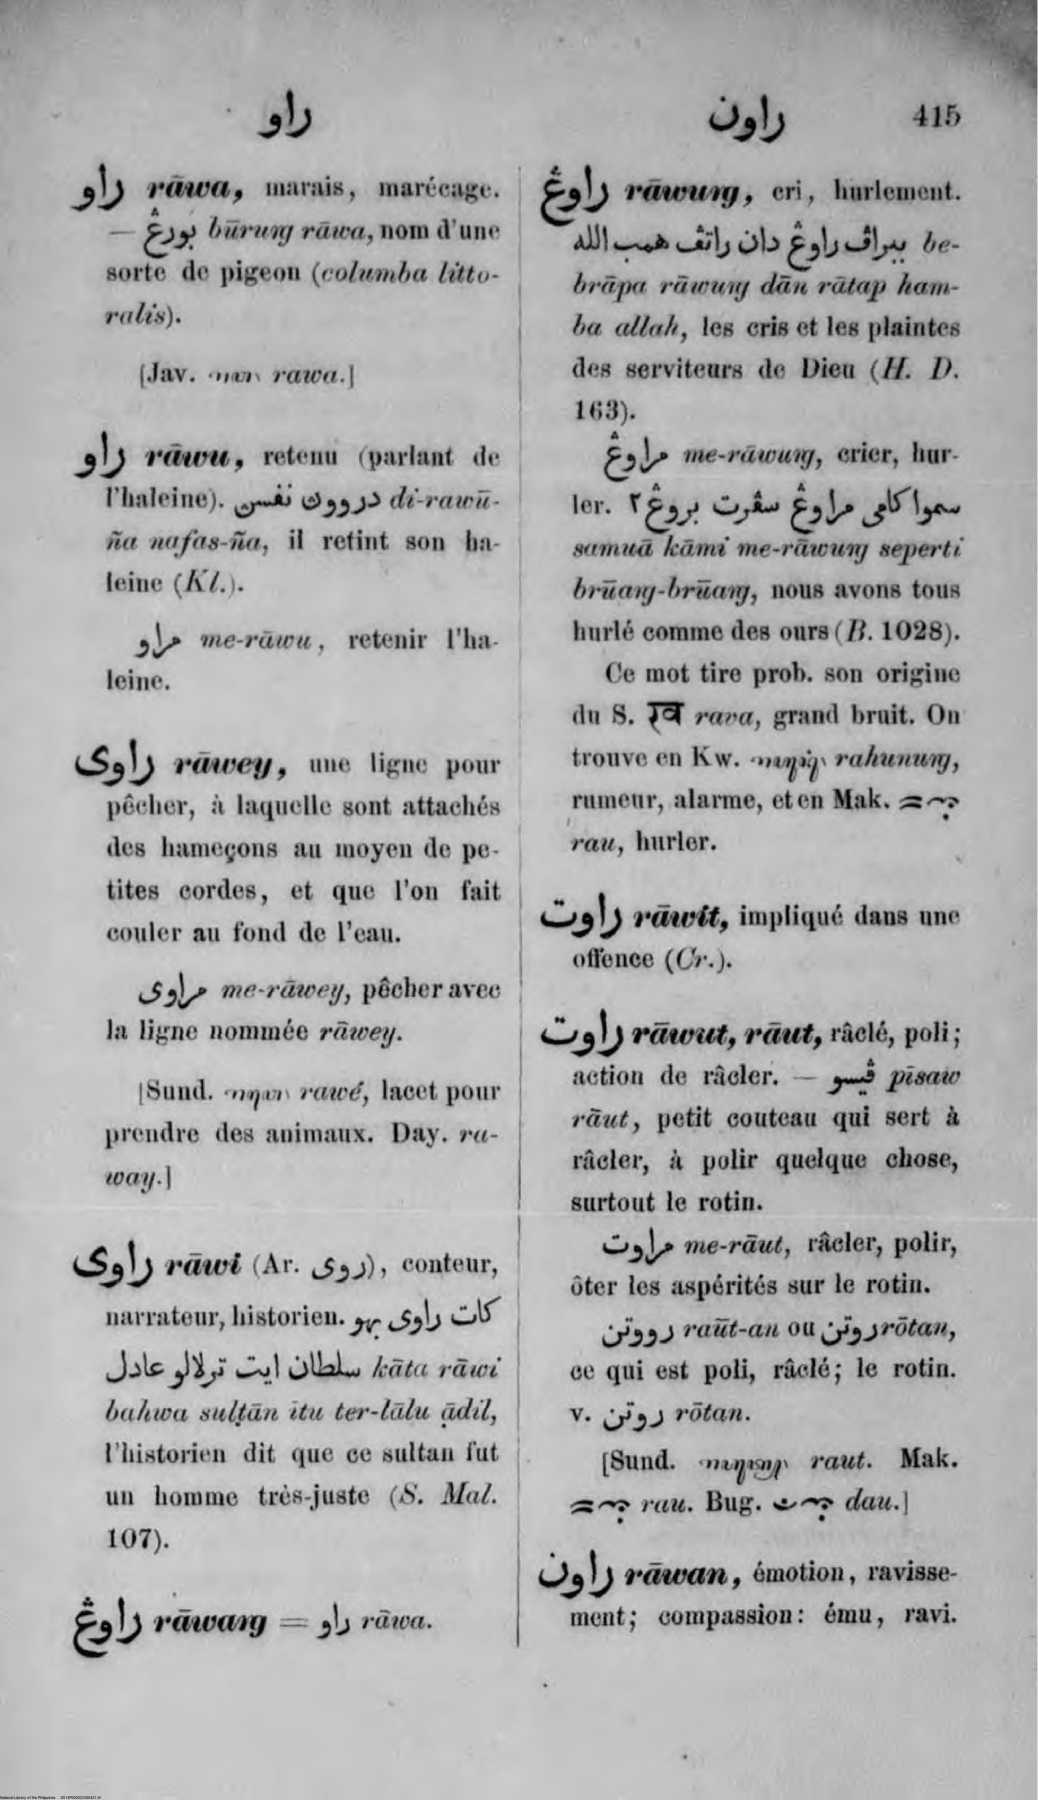 راو
راون 415
راو rāwa, marais, marécage.
— بورڠ būruṅg rāwa, nom d'une
sorte de pigeon (columba litto-
ralis).
[Jav. rawa.]
راو rāwu, retenu (parlant de
l'haleine). دروون نفسن di-rawū-
ña nafas-ña, il retint son ha-
leine (Kl.).
مراو me-rāwu, retenir l'ha-
leine.
راوى rāwey, une ligne pour
pêcher, à laquelle sont attachés
des hameçons au moyen de pe-
tites cordes, et que l'on fait
couler au fond de l'eau.
مراوى me-rāwey, pêcher avec
la ligne nommée rāwey.
[Sund. rawé, lacet pour
prendre des animaux. Day. ra-
way.]
راوى rāwi (Ar. روى), conteur,
narrateur, historien. كات راوى بهو
سلطان ايت ترلالو عادل kāta rāwi
bahwa sulṭān ītu ter-lālu ạ̄dil,
l'historien dit que ce sultan fut
un homme très-juste (S. Mal.
107).
راوڠ rāwaṅg = راو rāwa.
راوڠ rāwuṅg, cri, hurlement.
ببراڤ راوڠ دان راتڤ همب الله be-
brāpa rāwuṅg dān rātap ham-
ba allah, les cris et les plaintes
des serviteurs de Dieu (H. D.
163).
مراوڠ me-rāwuṅg, crier, hur-
ler. سموا كامى مراوڠ سڤرت بروڠ ٢
samuā kāmi me-rāwuṅg seperti
brūaṅg-brūaṅg, nous avons tous
hurlé comme des ours (B. 1028).
Ce mot tire prob. son origine
du S. रव rava, grand bruit. On
trouve en Kw. rahunuṅg,
rumeur, alarme, et en Mak.
rau, hurler.
راوت rāwit, impliqué dans une
offence (Cr.).
راوت rāwut, rāut, râclé, poli;
action de râcler. — ڤيسو pīsaw
rāut, petit couteau qui sert à
râcler, à polir quelque chose,
surtout le rotin.
مراوت me-rāut, râcler, polir,
ôter les aspérités sur le rotin.
رووتن raūt-an ou روتن rōtan,
ce qui est poli, râclé; le rotin.
v. روتن rōtan.
[Sund. raut. Mak.
rau. Bug. dau.]
راون rāwan, émotion, ravisse-
ment; compassion: ému, ravi.